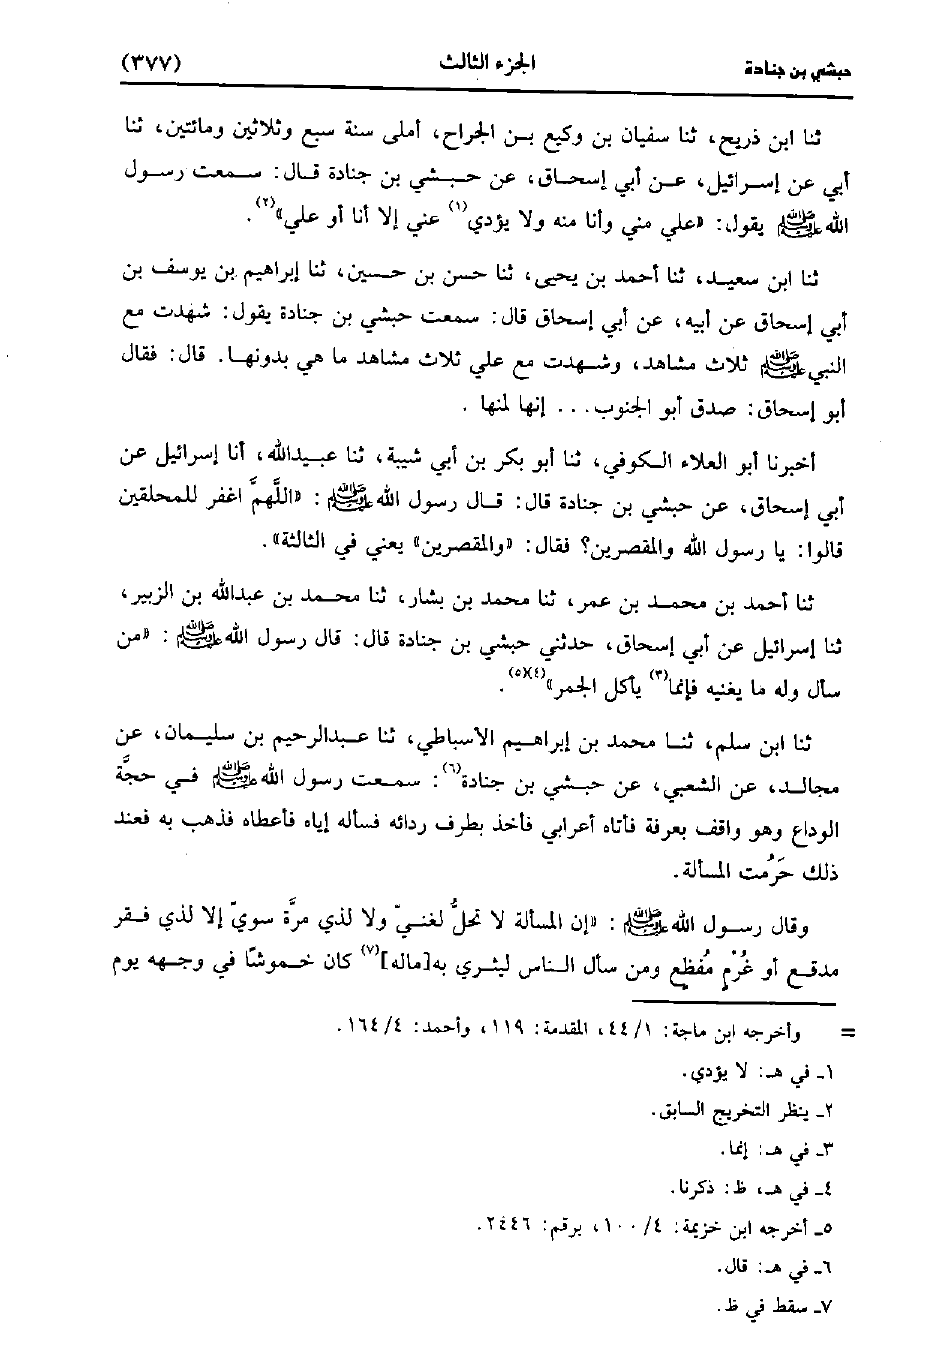 حبشي بن جنادة الجزء الثالث (٣٧٧)
ثنا ابن ذريح، ثنا سفيان بن وكيع بن الجراح، أملى سنة سبع وثلاثين ومائتين، ثنا
أبي عن إسرائيل، عن أبي إسحاق، عن حبشي بن جنادة قال: سمعت رسول
الله ﷺ يقول: «علي مني وأنا منه ولا يؤدي(١) عني إلا أنا أو علي»(٢).
ثنا ابن سعيد، ثنا أحمد بن يحيى، ثنا حسن بن حسين، ثنا إبراهيم بن يوسف بن
أبي إسحاق عن أبيه، عن أبي إسحاق قال: سمعت حبشي بن جنادة يقول: شهدت مع
النبي ﷺ ثلاث مشاهد، وشهدت مع علي ثلاث مشاهد ما هي بدونها. قال: فقال
أبو إسحاق: صدق أبو الجنوب... إنها لمنها.
أخبرنا أبو العلاء الكوفي، ثنا أبو بكر بن أبي شيبة، ثنا عبيدالله، أنا إسرائيل عن
أبي إسحاق، عن حبشي بن جنادة قال: قال رسول الله ﷺ: «اللَّهمَّ اغفر للمحلقين
قالوا: يا رسول الله والمقصرين؟ فقال: «والمقصرين» يعني في الثالثة».
ثنا أحمد بن محمد بن عمر، ثنا محمد بن بشار، ثنا محمد بن عبدالله بن الزبير،
ثنا إسرائيل عن أبي إسحاق، حدثني حبشي بن جنادة قال: قال رسول الله ﷺ: «من
سأل وله ما يغنيه فإنما(٣) يأكل الجمر»(٤)(٥).
ثنا ابن سلم، ثنا محمد بن إبراهيم الأسباطي، ثنا عبدالرحيم بن سليمان، عن
مجالد، عن الشعبي، عن حبشي بن جنادة(٦): سمعت رسول الله ﷺ في حجَّة
الوداع وهو واقف بعرفة فأتاه أعرابي فأخذ بطرف ردائه فسأله إياه فأعطاه فذهب به فعند
ذلك حَرُمت المسألة.
وقال رسول الله ﷺ: «إن المسألة لا تحلُّ لغنيّ ولا لذي مرَّة سويّ إلا لذي فقر
مدقع أو غُرْمٍ مُفظِع ومن سأل الناس ليثري به[ماله](٧) كان خموشًا في وجهه يوم
= وأخرجه ابن ماجة: ٤٤/١، المقدمة: ١١٩، وأحمد: ١٦٤/٤.
١ـ في هـ: لا يؤدي.
٢ـ ينظر التخريج السابق.
٣ـ في هـ: إنما.
٤ـ في هـ، ظ: ذكرنا.
٥ـ أخرجه ابن خزيمة: ١٠٠/٤، برقم: ٢٤٤٦.
٦ـ في هـ: قال.
٧ـ سقط في ظ.